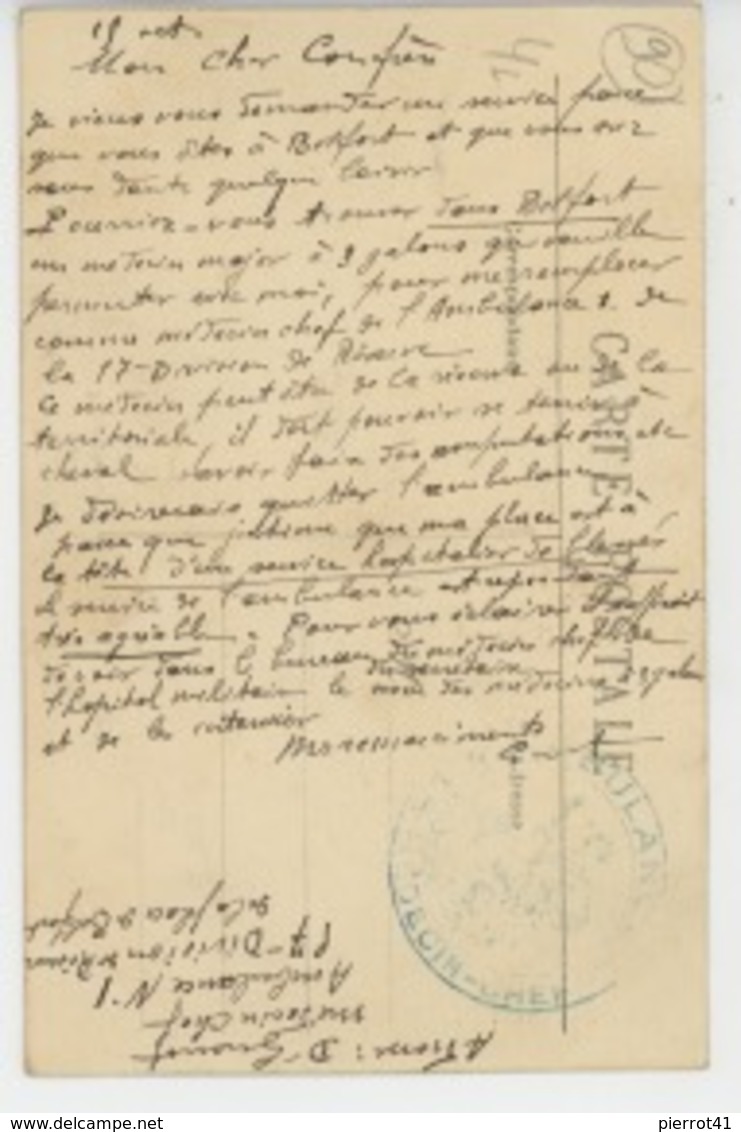 15 oct.
Mon Cher Confrère
Je viens vous demander un service parce
que vous êtes à Belfort et que vous avez
sans doute quelque loisir
Pourriez-vous trouver dans Belfort
un médecin major à 3 galons qui veuille
permuter avec moi, pour me remplacer
comme médecin chef de l'Ambulance 1 de
la 17e Division de Réserve
Ce médecin peut être de la réserve ou de la
territoriale, il doit pouvoir se tenir à
cheval savoir faire des amputations etc
Je désirerais quitter l'ambulance
parce que j'estime que ma place est à
la tête d'un service hospitalier de blessés
Le service de l'ambulance est cependant
très agréable. Pour vous éclairer il suffirait
de voir dans le bureau du médecin chef de
l'hôpital militaire le nom des médecins à 3 galons
et de les
Mes remerciements
CARTE POSTALE
Correspondance
Adresse
MÉDECIN-CHEF
Adresse : Dr
Médecin Chef
Ambulance N°1
17e Division de Réserve
de la place de Belfort
90
www.delcampe.net
pierrot41